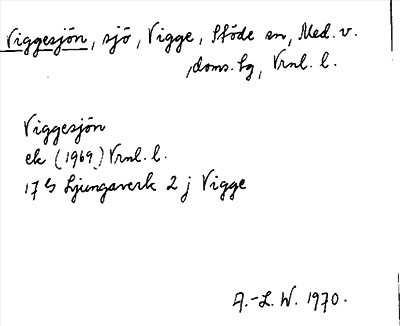 Viggesjön, sjö, Vigge, Stöde sn, Med. v.
doms. sg, Vrnl. l.
Viggesjön
ek (1969) Vrnl. l.
17 G Ljungaverk 2 j Vigge
A.-L. W. 1970.